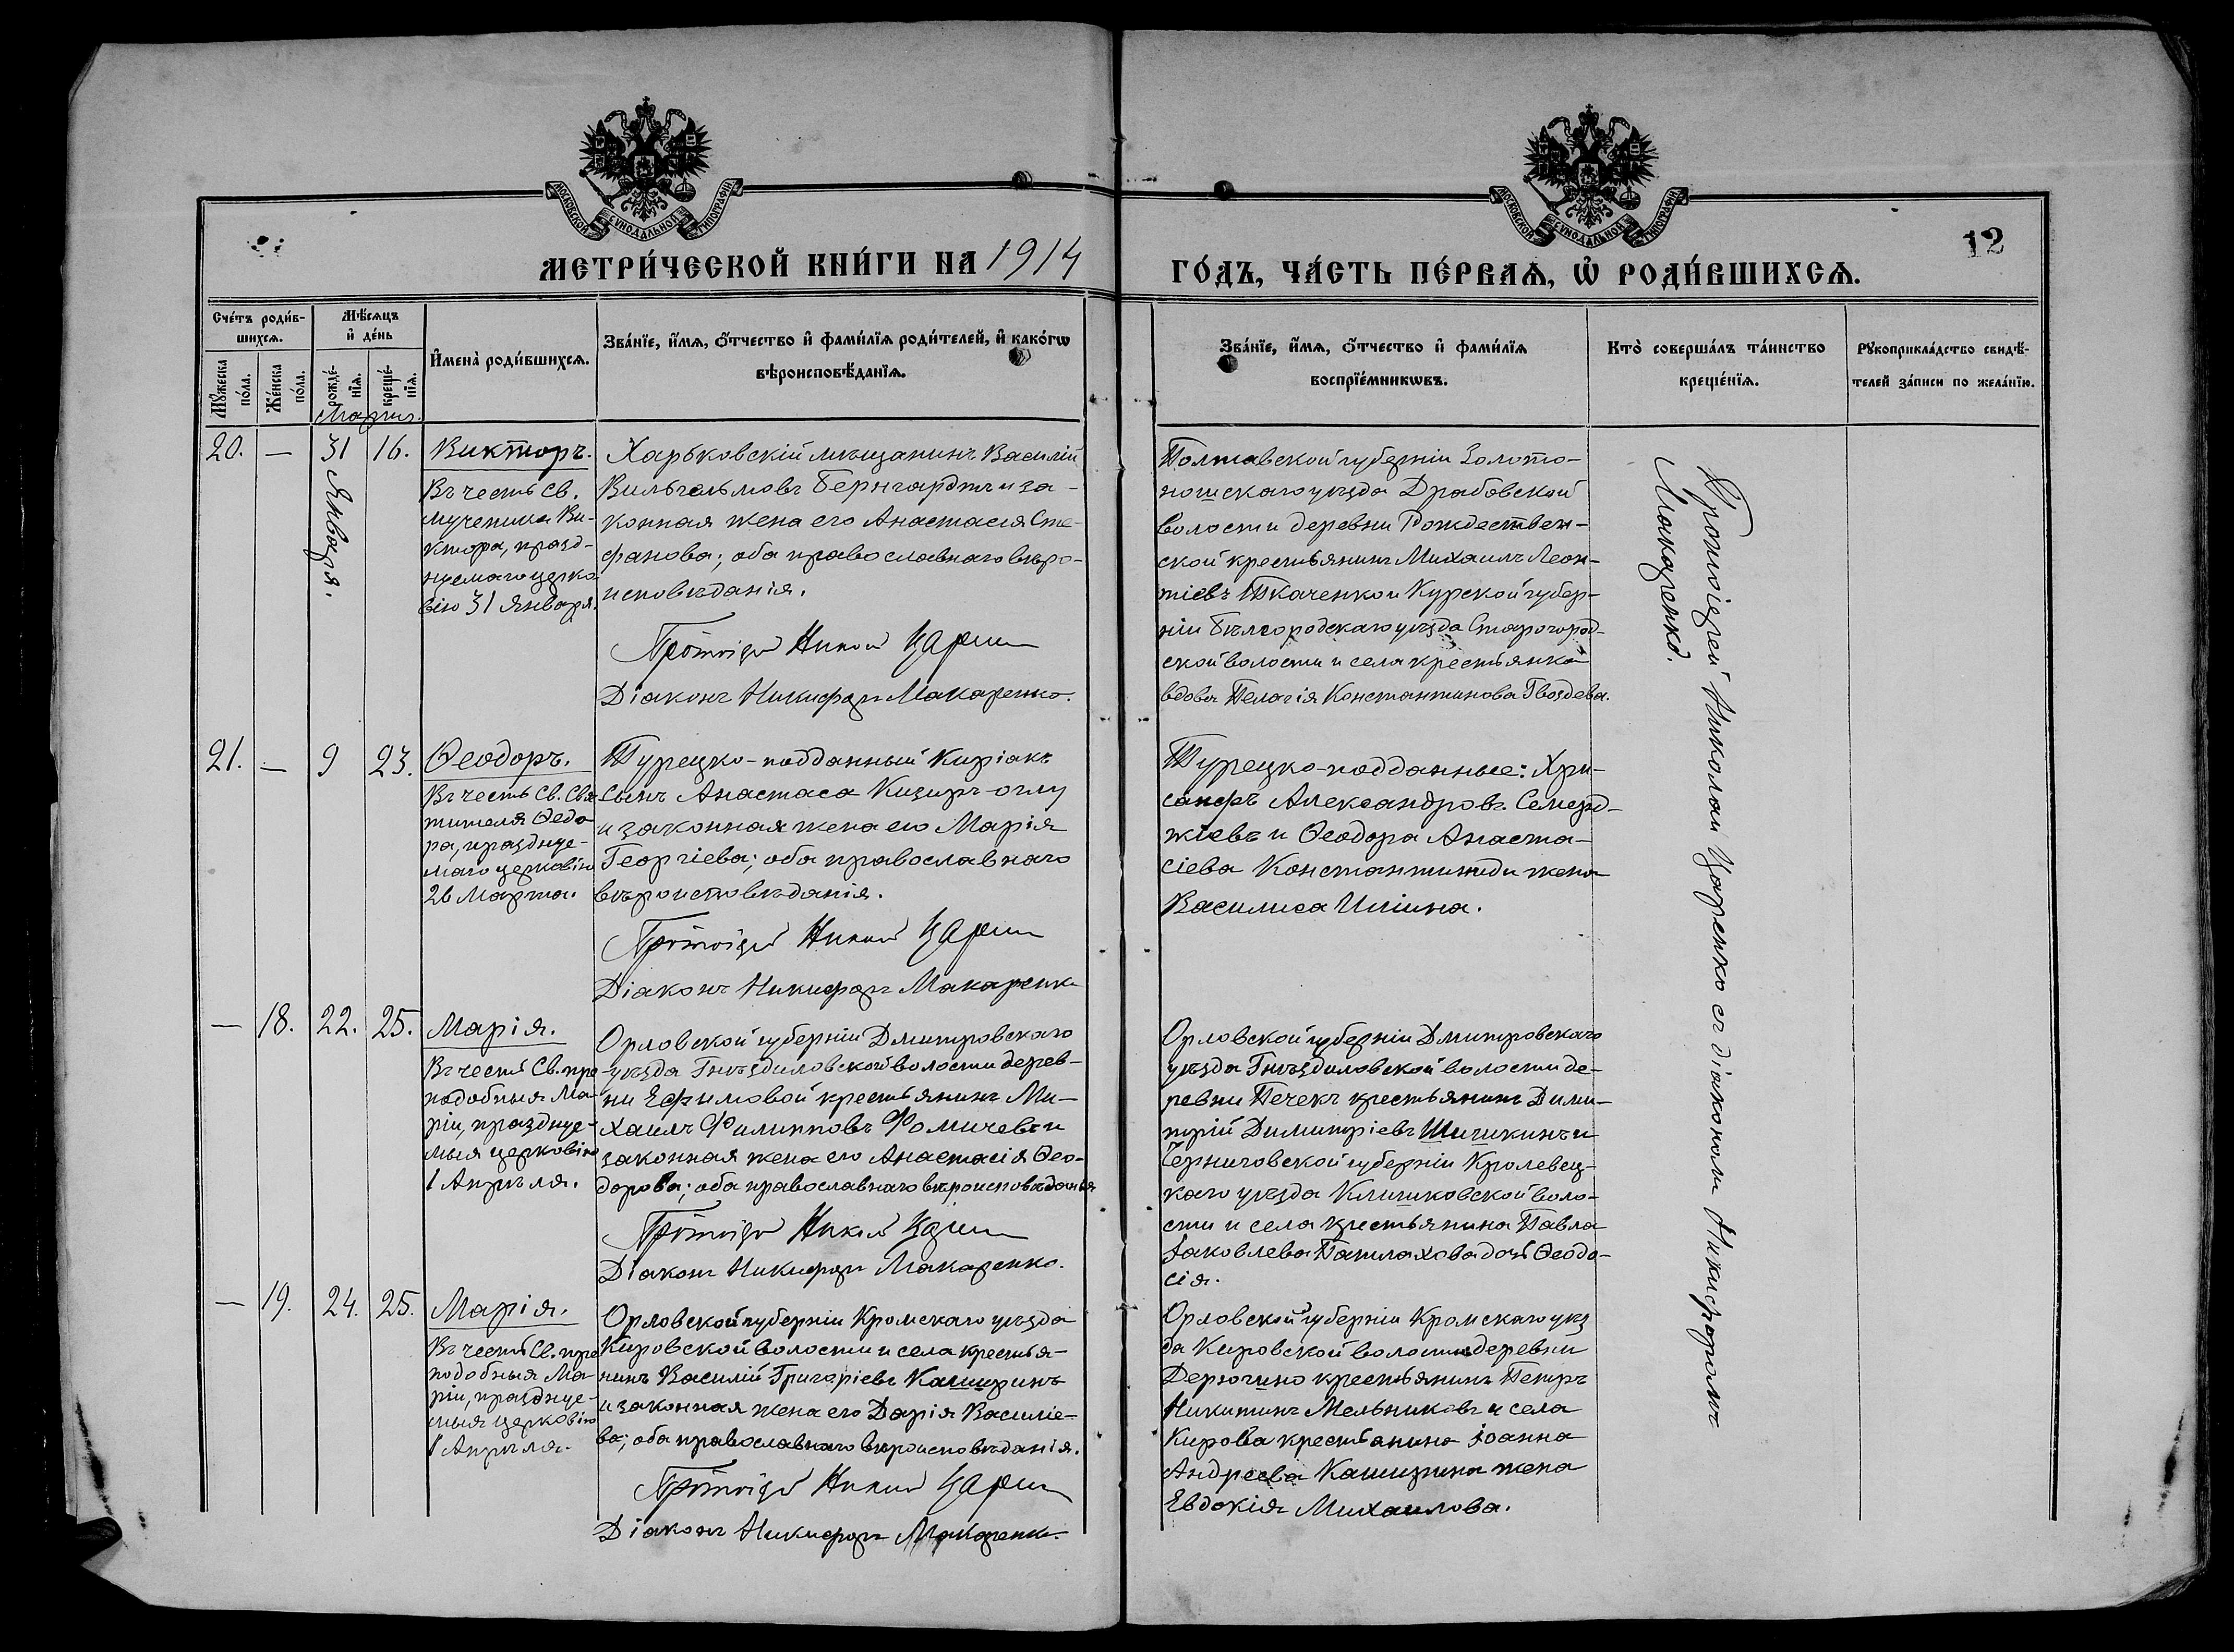 МОСКОВСКОЙ СУНОДАЛЬНОЙ ТИПОГРАФІИ
МОСКОВСКОЙ СУНОДАЛЬНОЙ ТИПОГРАФІИ
12
МЕТРИ́ЧЕСКОЙ КНИ́ГИ НА 1914
ГО́ДЪ, ЧА́СТЬ ПЕ́РВАѦ, Ѡ҆ РОДИ́ВШИХСѦ.
Сче́тъ роди́в-
шихсѧ.
Мꙋ́жеска по́ла.
Же́нска по́ла.
Мѣ́сѧцъ
и҆ де́нь
рожде́-
нїѧ.
креще́-
нїѧ.
И҆мена̀ роди́вшихсѧ.
Зва́нїе, и҆́мѧ, ѻ҆́тчество и҆ фами́лїѧ роди́телей, и҆ како́гѡ
вѣроисповѣ́данїѧ.
Зва́нїе, и҆́мѧ, ѻ҆́тчество и҆ фами́лїѧ
воспрїе́мникѡвъ.
Кто̀ соверша́лъ та́инство
креще́нїѧ.
Рꙋкоприкла́дство свидѣ́-
телей за́писи по жела́нїю.
Мартъ.
20. — 31 16. Викторъ.
Января.
Въ честь св.
мученика Ви-
ктора, празд-
нуемаго церко-
вію 31 Января.
Харьковскій мѣщанинъ Василій
Вильгельмовъ Бернгардтъ и за-
конная жена его Анастасія Сте-
фанова; оба православнаго вѣро-
исповѣданія.
Протоіерей Николай Царенко
Діаконъ Никифоръ Макаренко.
Полтавской губерніи Золото-
ношскаго уѣзда Драбовской
волости деревни Рождествен-
ской крестьянинъ Михаилъ Леон-
тіевъ Ткаченко и Курской губер-
ніи Бѣлгородскаго уѣзда Старогород-
ской волости и села крестьянка
вдова Пелагія Константинова Гвоздева.
Протоіерей Николай Царенко съ діакономъ Никифоромъ
Макаренко.
21. — 9 23. Ѳеодоръ.
Въ честь Св. Свя-
тителя Ѳедо-
ра, празднуе-
маго церковію
26 Марта.
Турецко-подданный Киріакъ
сынъ Анастаса Кизиръ-оглу
и законная жена его Марія
Георгіева; оба православнаго
вѣроисповѣданія.
Протоіерей Николай Царенко
Діаконъ Никифоръ Макаренко
Турецко-подданные: Хри-
санфъ Александровъ Семерд-
жіевъ и Ѳеодора Анаста-
сіева Константиниди жена
Василиса Иліина.
— 18. 22. 25. Марія.
Въ честь Св. пре-
подобныя Ма-
ріи, празднуе-
мыя церковію
1 Апрѣля.
Орловской губерніи Дмитровскаго
уѣзда Гнѣздиловской волости дерев-
ни Ефимовой крестьянинъ Ми-
хаилъ Филипповъ Фомичевъ и
законная жена его Анастасія Ѳео-
дорова; оба православнаго вѣроисповѣданія
Протоіерей Николай Царенко
Діаконъ Никифоръ Макаренко.
Орловской губерніи Дмитровскаго
уѣзда Гнѣздиловской волости де-
ревни Печекъ крестьянинъ Дими-
трій Димитріевъ Шишкинъ и
Черниговской губерніи Кролевец-
каго уѣзда Клишковской воло-
сти и села крестьянина Павла
Іаковлева дочь Ѳеодо-
сія.
— 19. 24. 25. Марія.
Въ честь Св. пре
подобныя Ма-
ріи, празднуе-
мыя церковію
1 Апрѣля.
Орловской губерніи Кромскаго уѣзда
Кировской волости и села крестья-
нинъ Василій Григоріевъ Каширинъ
и законная жена его Дарія Василіе-
ва; оба православнаго вѣроисповѣданія.
Протоіерей Николай Царенко
Діаконъ Никифоръ Макаренко.
Орловской губерніи Кромскаго уѣз
да Кировской волости деревни
Дерюгино крестьянинъ Петръ
Никитинъ Мельниковъ и села
Кирова крестьянина Іоанна
Андреева Каширина жена
Евдокія Михаилова.